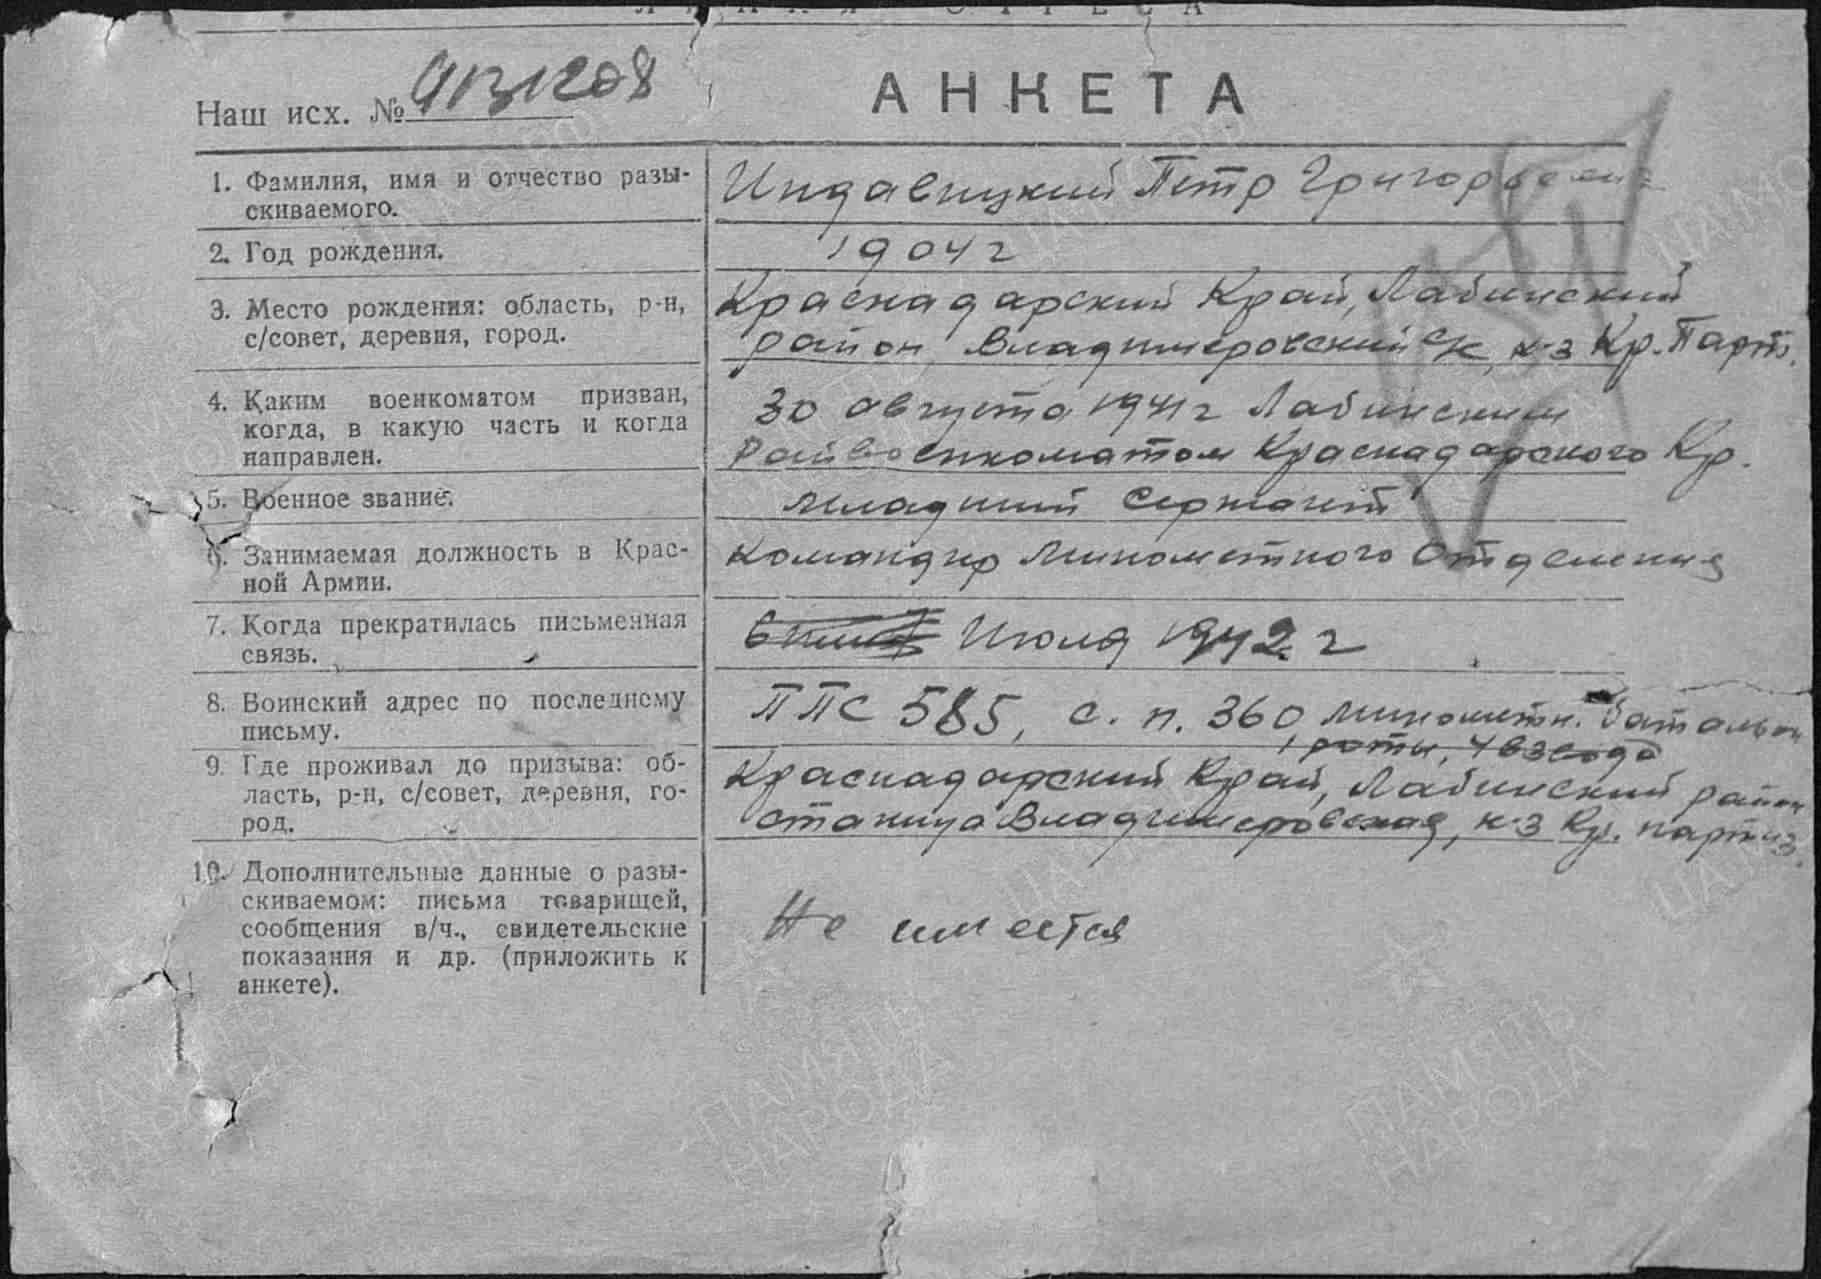 ЛИНИЯ ОТРЕЗА
Наш исх. №
АНКЕТА
1. Фамилия, имя и отчество разы-
скиваемого.
Индавицкий Петр Григорьевич
2. Год рождения.
1904 г
3. Место рождения: область, р-н,
с/совет, деревня, город.
Краснадарский Край, Лабинский
район Владимеровский с/к, к-з Кр. Парт.
4. Каким военкоматом призван,
когда, в какую часть и когда
направлен.
30 августа 1941 г Лабинским
Райвоенкоматом Краснадарского Кр.
5. Военное звание.
младший Сержант
6. Занимаемая должность в Крас-
ной Армии.
Командир Минометного Отделения
7. Когда прекратилась письменная
связь.
Июля 1942 г
8. Воинский адрес по последнему
письму.
ППС 585, с. п. 360 минометн. батальон
1 роты, 4 взвода
9. Где проживал до призыва: об-
ласть, р-н, с/совет, деревня, го-
род.
Краснадарский Край, Лабинский район
станица Владимеровская, к-з Кр. партиз.
10. Дополнительные данные о разы-
скиваемом: письма товарищей,
сообщения в/ч., свидетельские
показания и др. (приложить к
анкете).
Не имеется
ПАМЯТЬ
НАРОДА
ПАМЯТЬ
НАРОДА